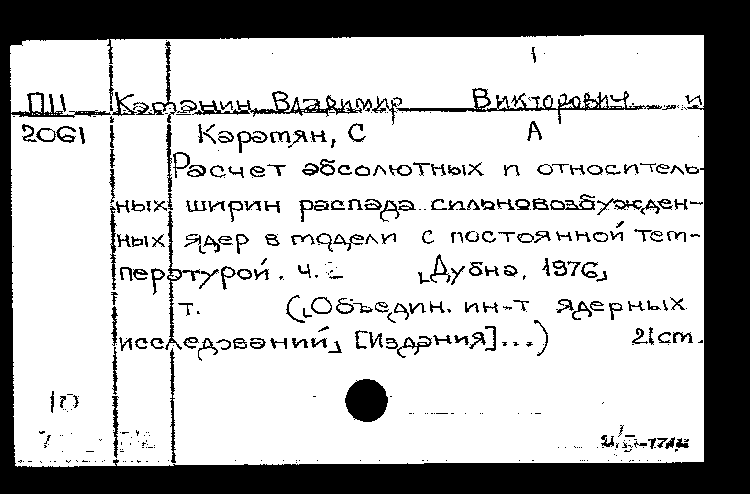 ПЦ Катанин, Владимир Викторович и
2061 Каратян, С А
Расчет абсолютных и относитель-
ных ширин распада сильновозбужден-
ных ядер в модели с постоянной тем-
пературой. ч. 2 [Дубна, 1976]
т. ([Объедин. ин-т ядерных
исследований] [Издания]...) 21 см.
10